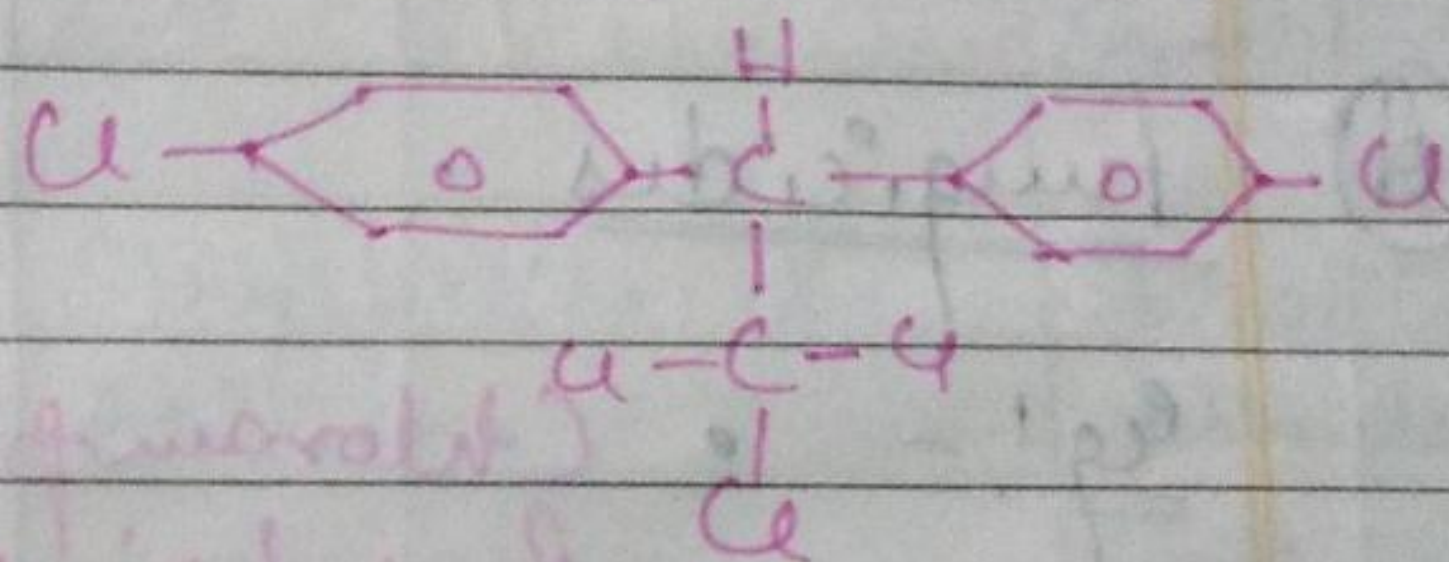 H
Cl O C O Cl
Cl - C - Cl
Cl